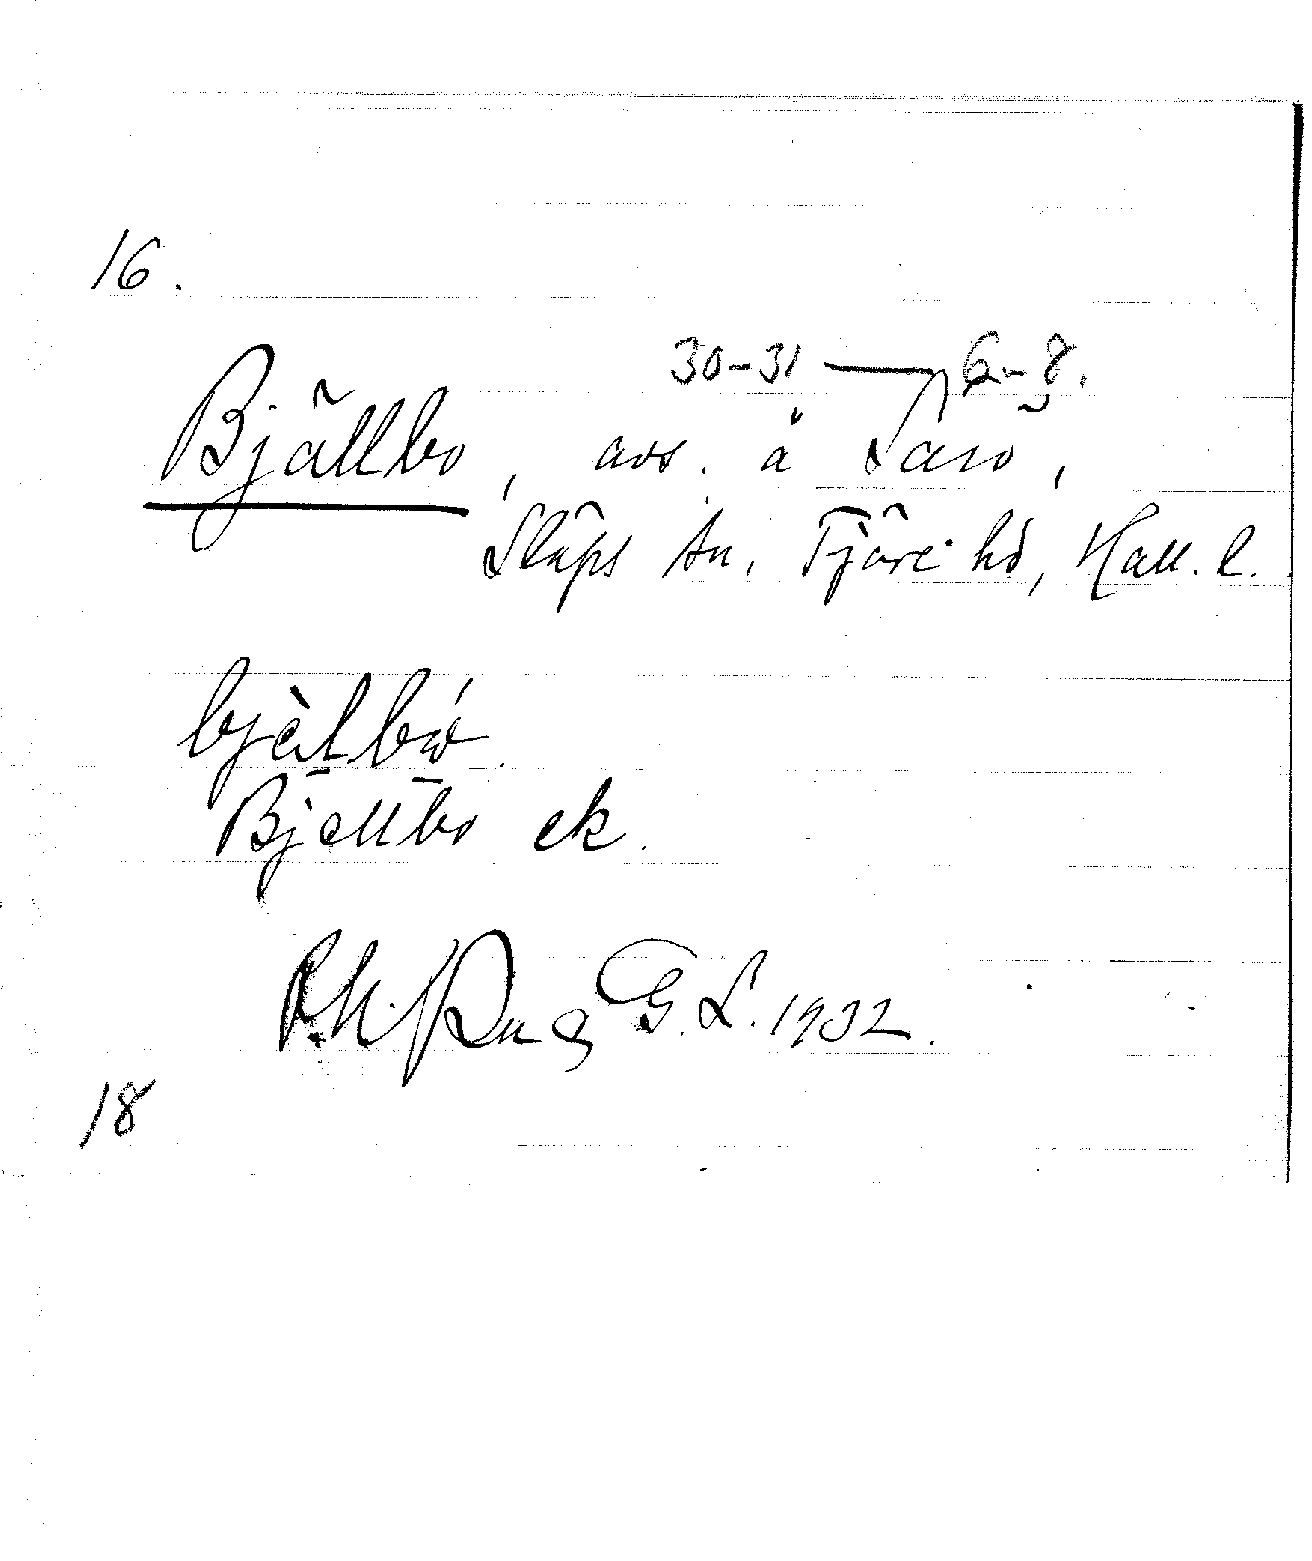 16.
30-31 — 6-8.
Bjällbo, avs. å Särö,
Släps sn, Fjäre hd, Hall. l.
bjàlbó
Bjällbo ek.
G. L. 1932.
18